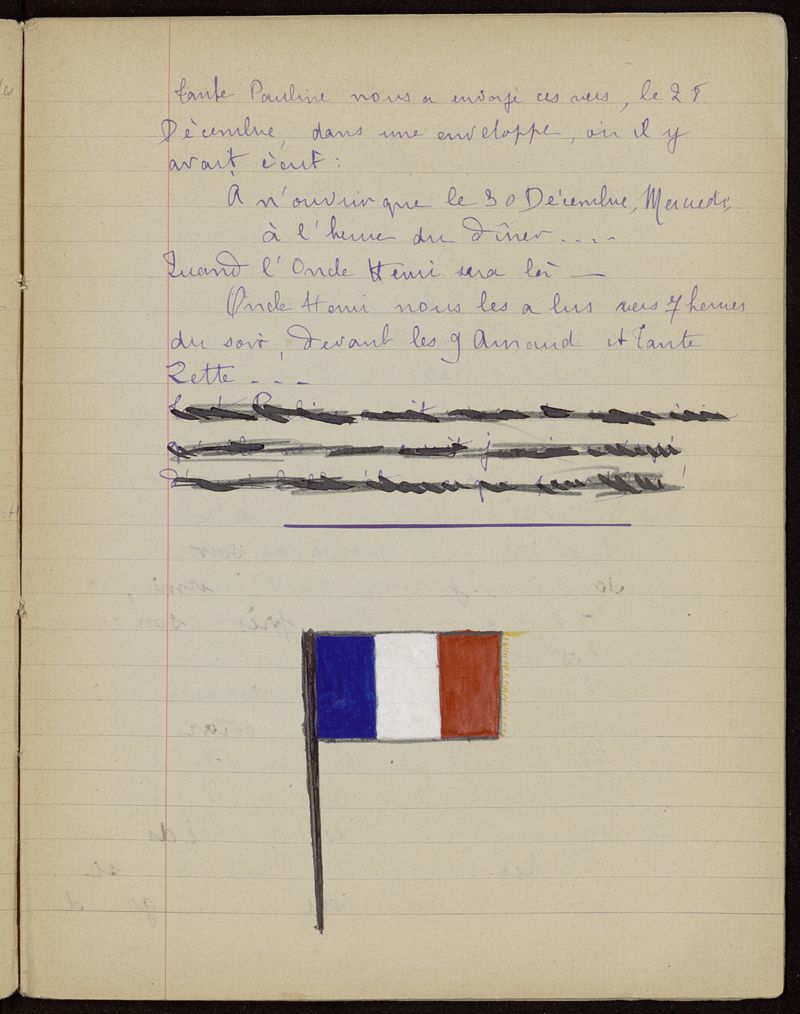 Tante Pauline nous a envoyé ces vers, le 25
Décembre, dans une enveloppe, où il y
avait écrit :
A n'ouvrir que le 30 Décembre, Mercredi,
à l'heure du dîner....
Quand l'Oncle Henri sera là —
Oncle Henri nous les a lus vers 7 heures
du soir, devant les 9 Arnaud et Tante
Zette ---